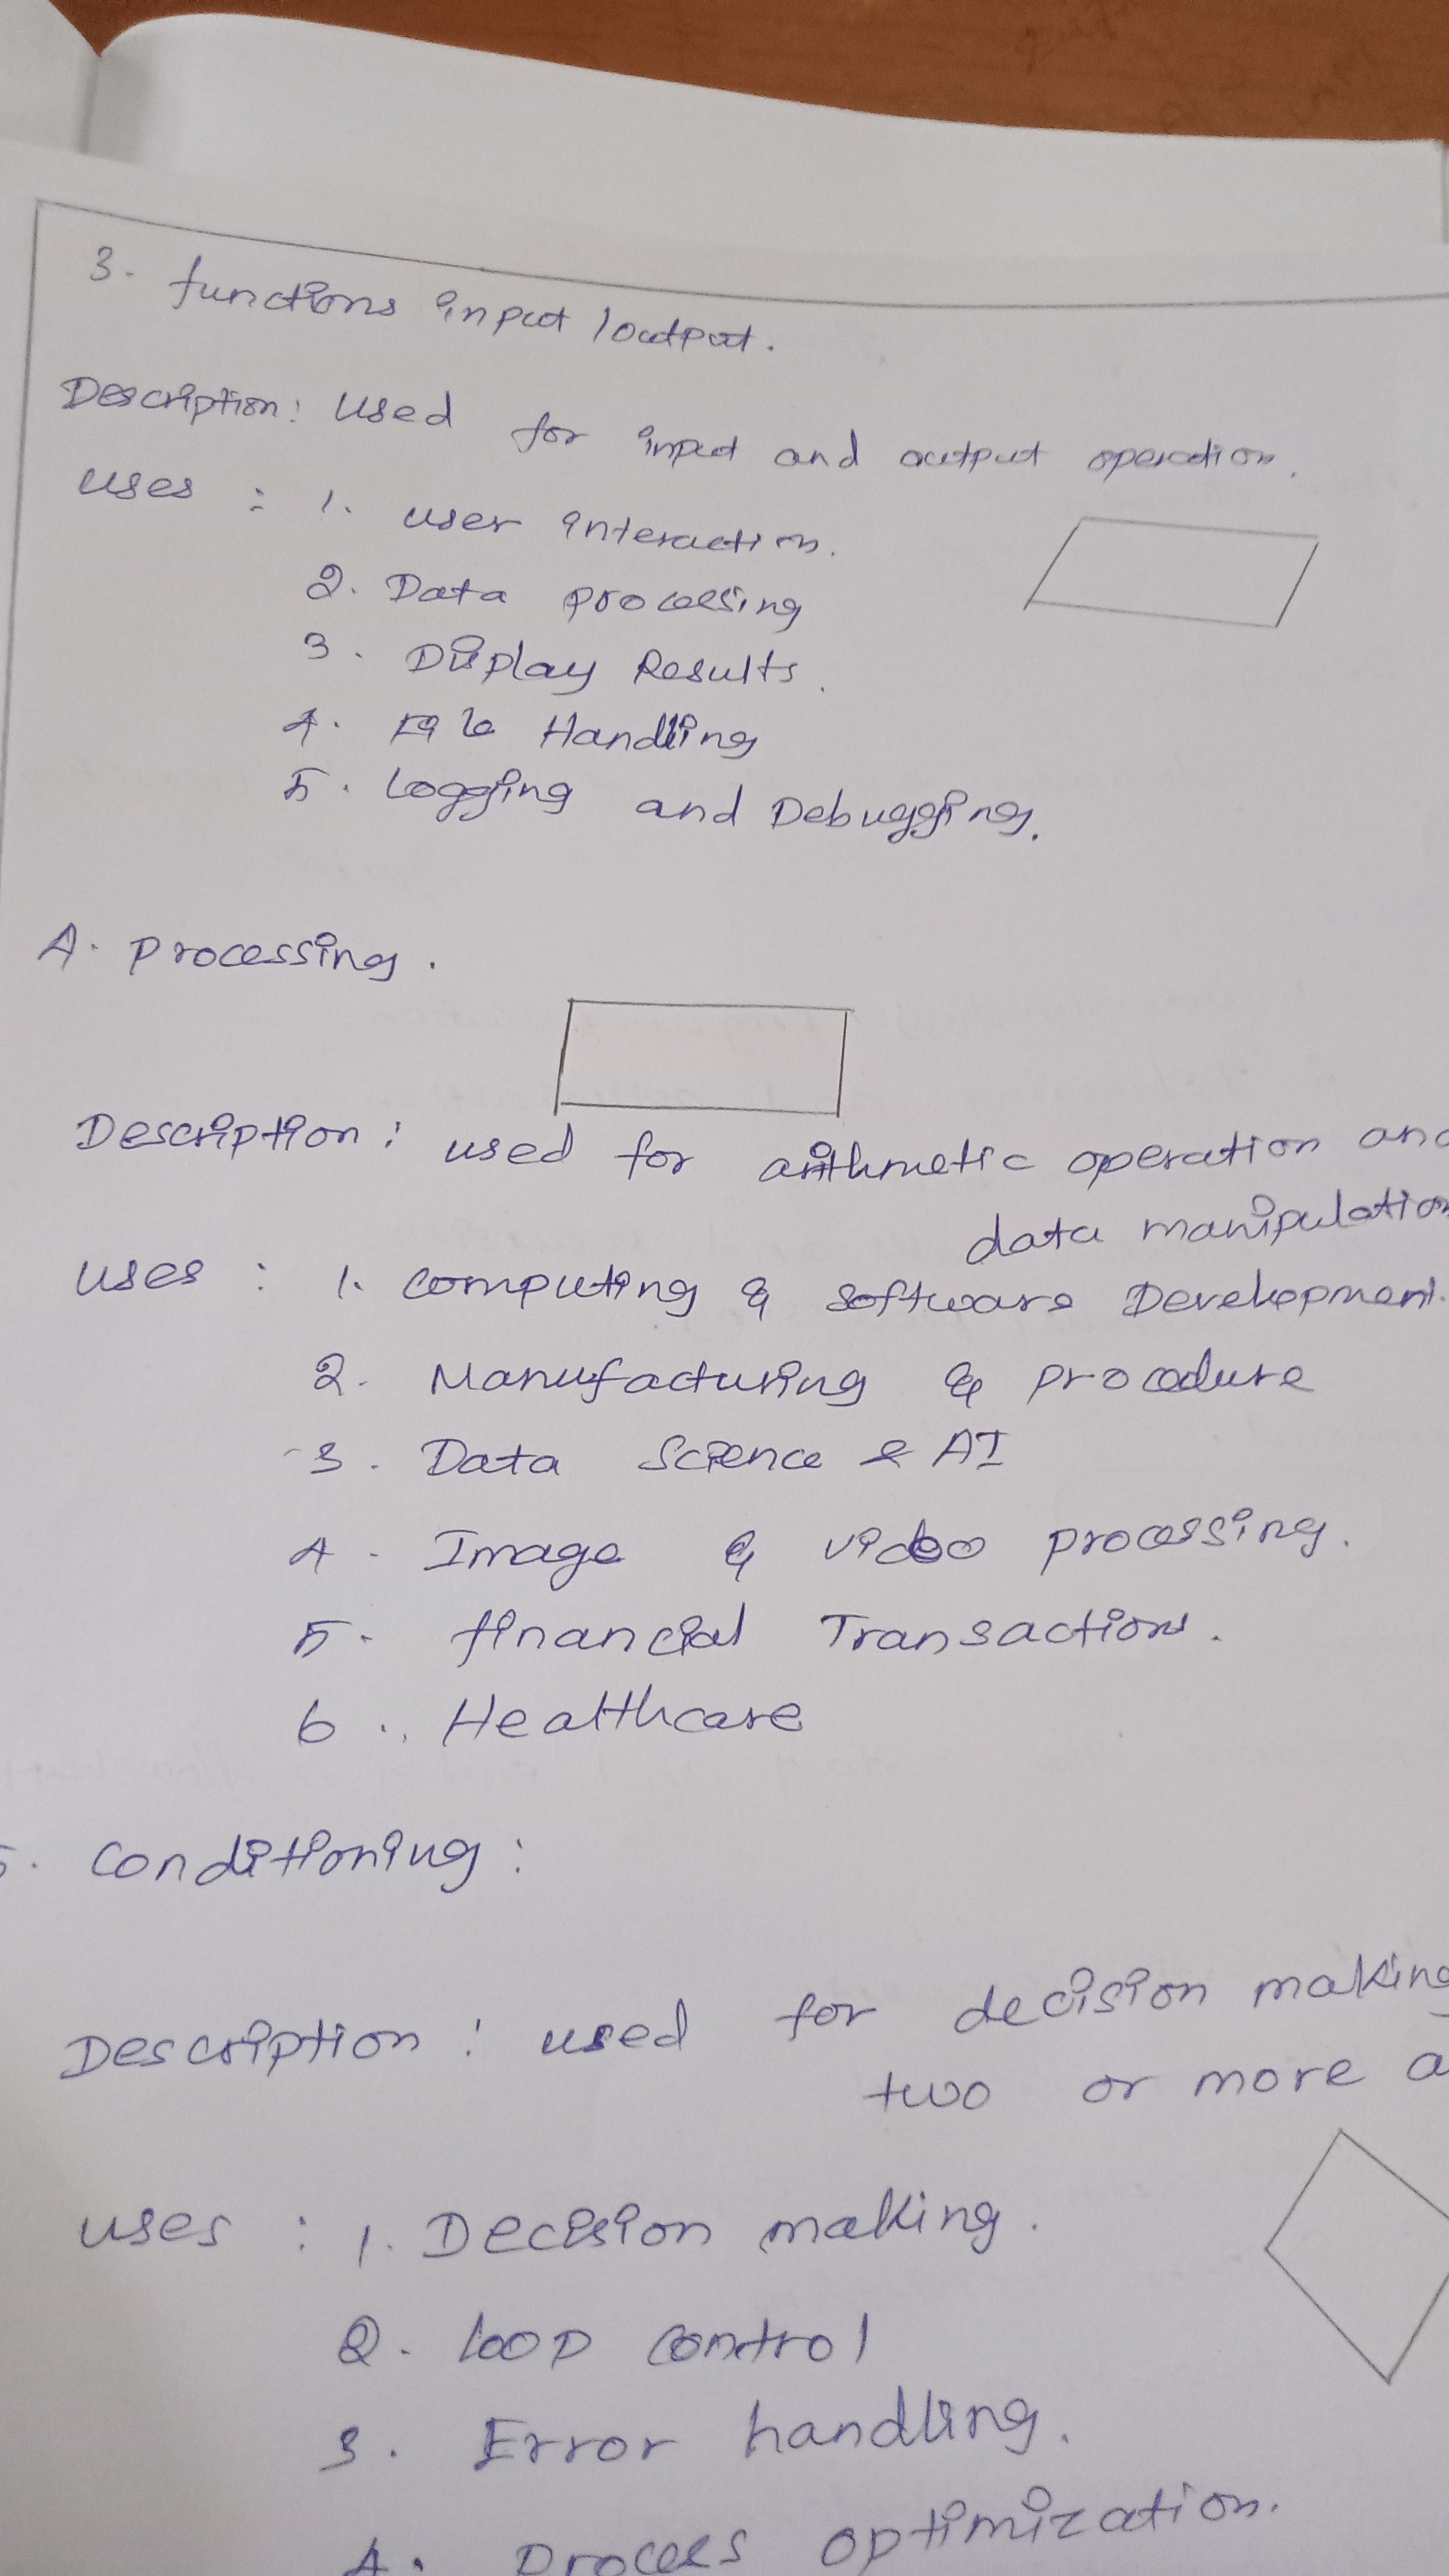 3. functions input / output.
Description: Used for input and output operation.
uses : 1. user interaction.
2. Data processing
3. Display Results.
4. File Handling
5. Logging and Debugging.
4. processing.
Description: used for arithmetic operation and
data manipulation
uses : 1. computing & software Development.
2. Manufacturing & procedure
3. Data Science & AI
4. Image & video processing.
5. financial Transactions.
6. Healthcare
5. conditioning :
Description : used for decision making
two or more
uses : 1. Decision making.
2. loop control
3. Error handling.
4. process optimization.